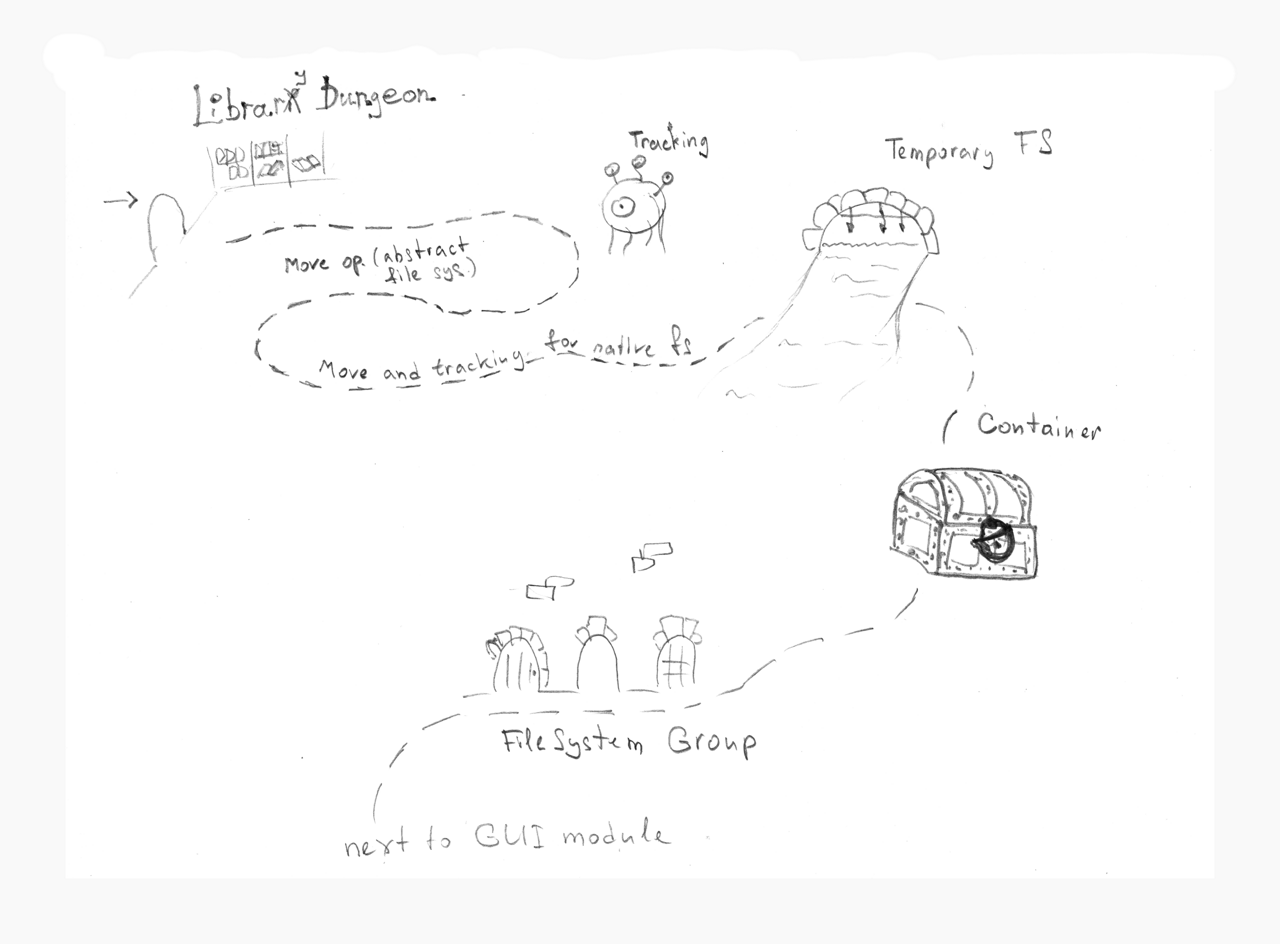 Library Dungeon
Tracking
Temporary FS
Move op. (abstract
file sys.)
Move and tracking for native fs
Container
FileSystem Group
next to GUI module